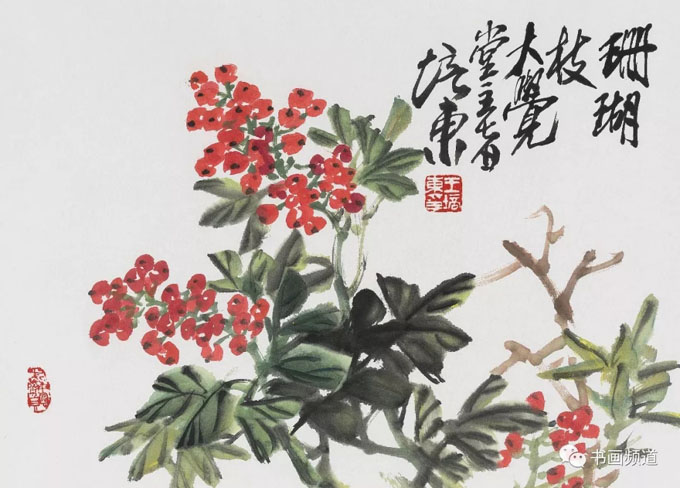 珊瑚
枝
大覺
堂主
培東
王培
東印
书画频道